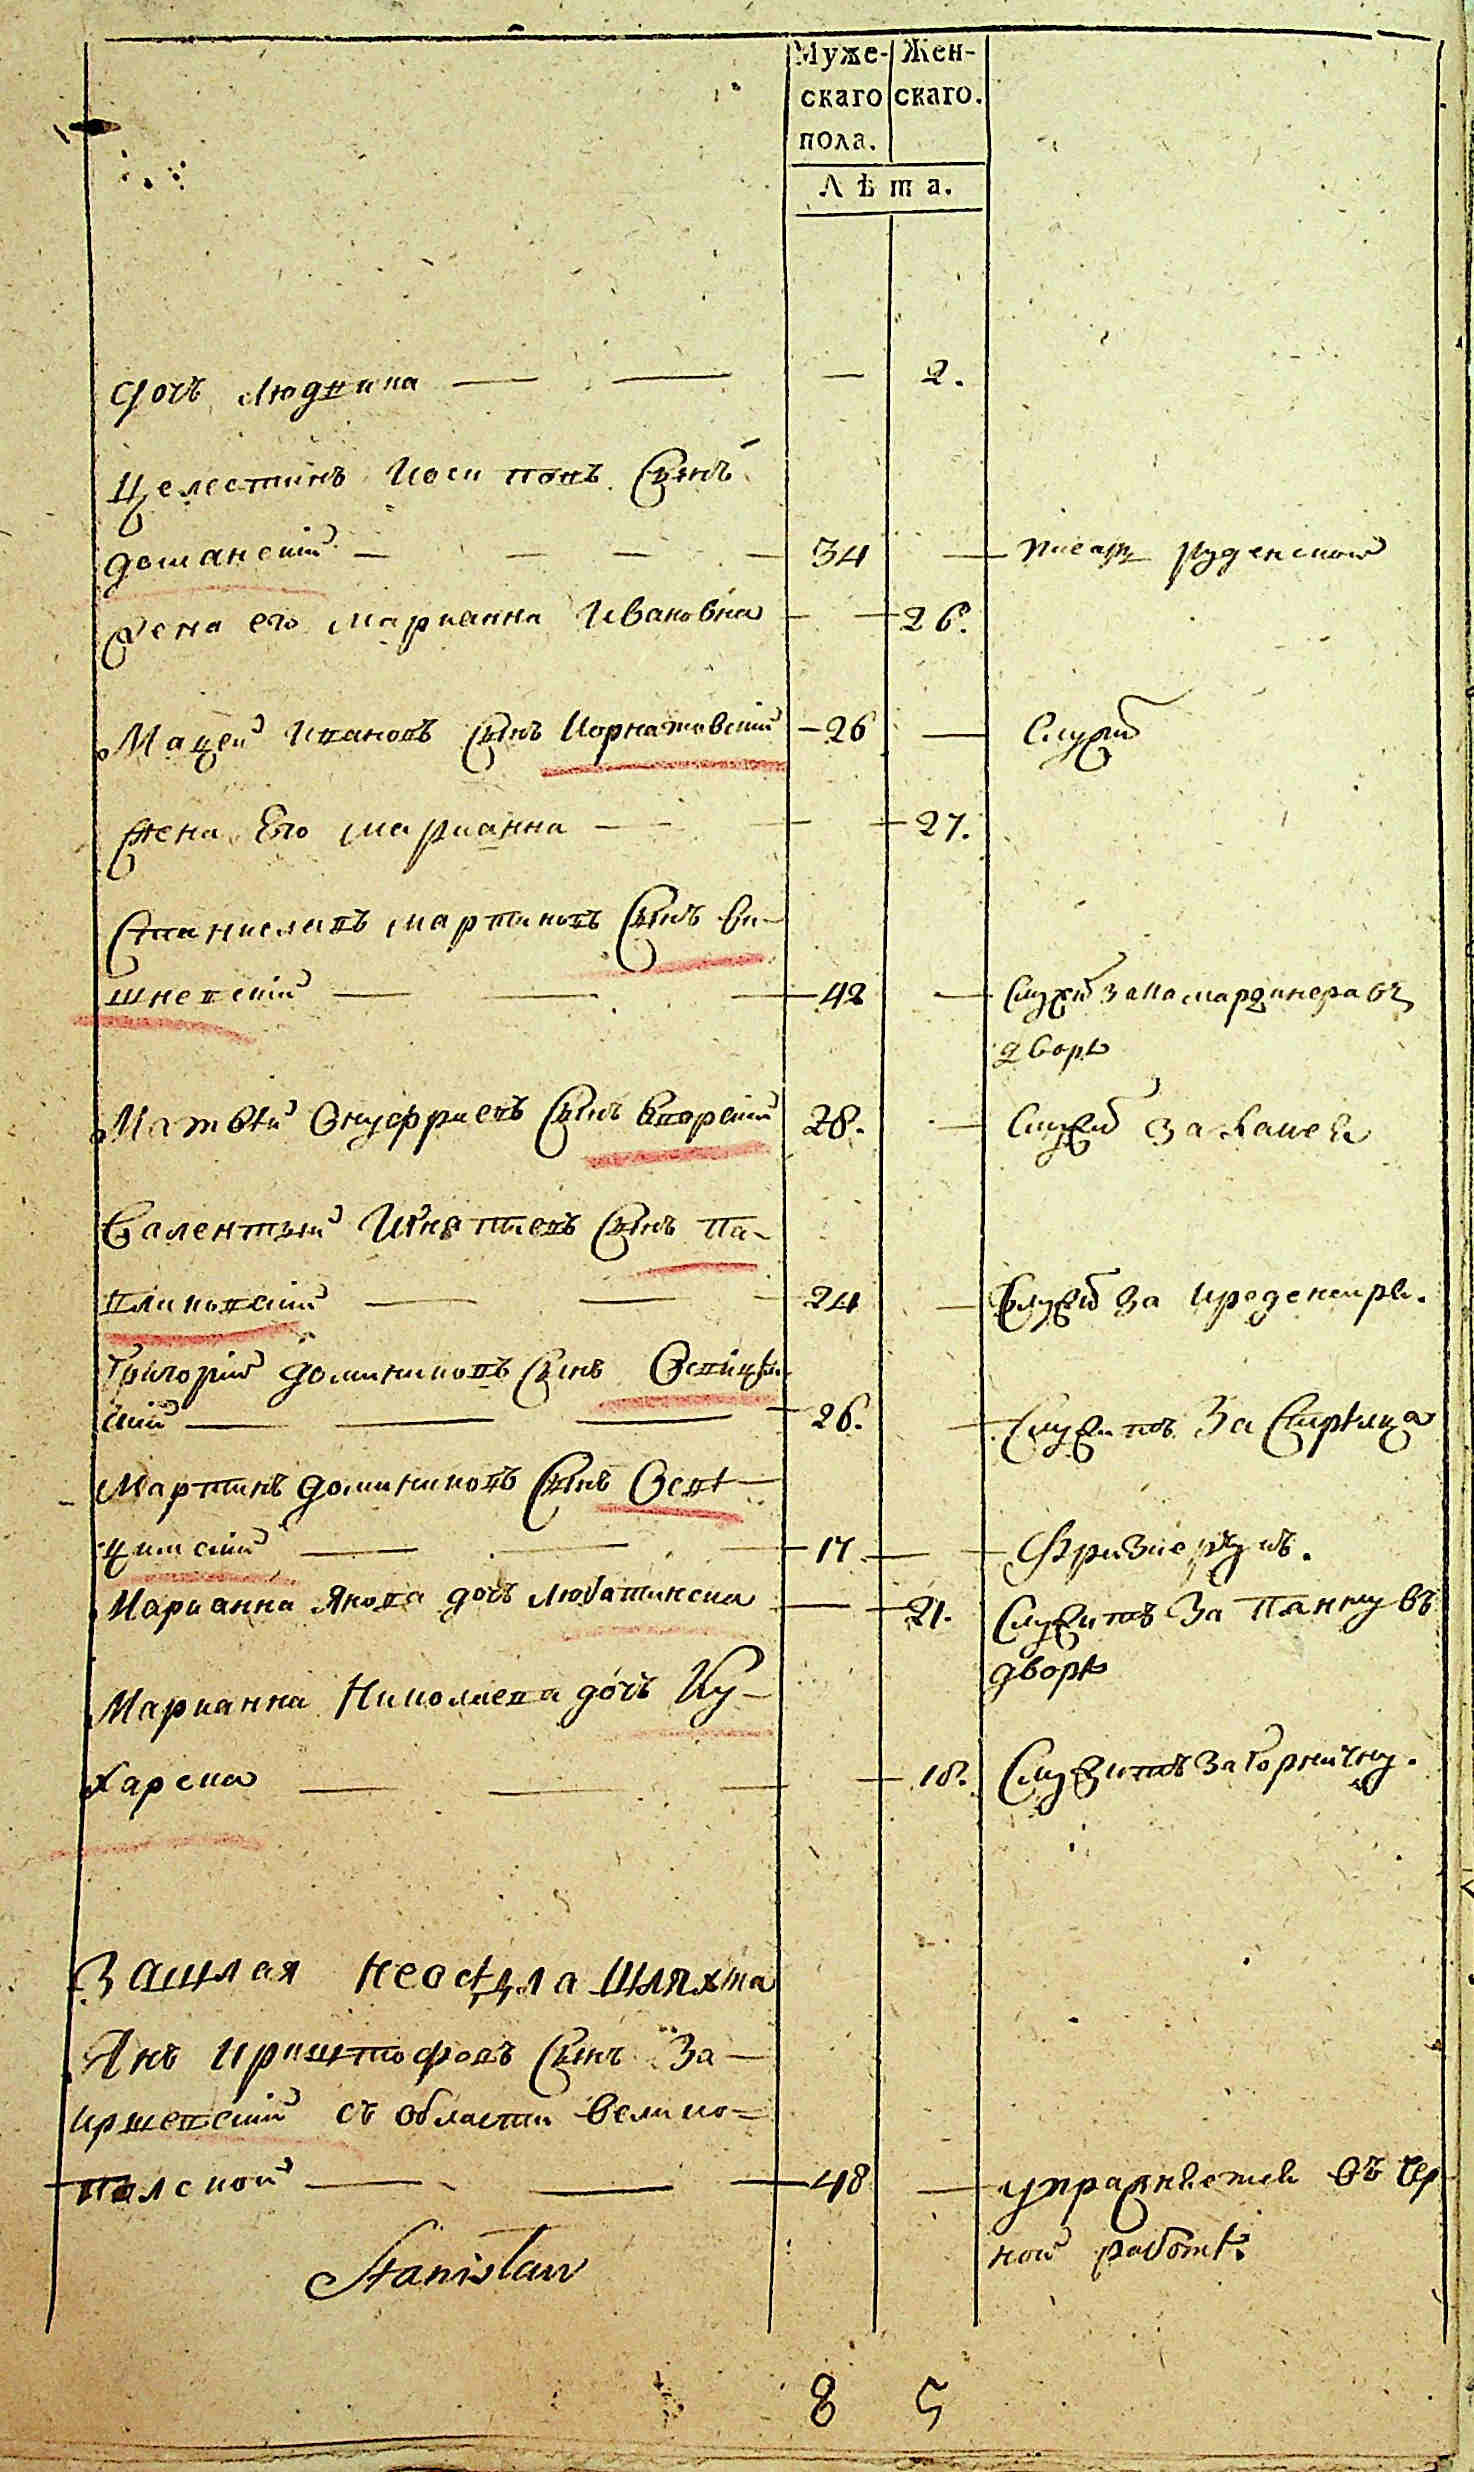 Муже- Жен-
скаго скаго.
пола.
Лѣта.
дочъ Людвика — 2.
Целестинъ Иосиповъ Сынъ
Доманскій 34 — писар руденской
Жена его Марианна Ивановна 26.
Мацей Ивановъ Сынъ Корнатовскій 26 — Служит
Жена Его Марианна 27.
Станиславъ Мартиновъ Сынъ Ви-
шневскій 42 — Служит за камардинера въ
дворѣ
Матвѣй Онуфриевъ Сынъ 28. — Служит за
Валентый Игнатиевъ Сынъ Па-
вликовскій 24 — Служит за креденсира.
Григорий Доминиковъ Сынъ
скій 26. — Служитъ За Стрѣлца
Мартинъ Доминиковъ Сынъ Освѣ-
цимскій 17 — Фризиеромъ.
Марианна Якова дочъ Любатинска 21. Служитъ За Панну въ
дворѣ
Марианна Николаева дочъ Ку-
харска 18. Служитъ за Горничну.
Зашлая Неосѣдла Шляхта
Янъ Криштофовъ Сынъ За-
кржевскій съ области велико-
полской 48 — упражняется въ чер
ной работѣ.
Stanisław
8 5